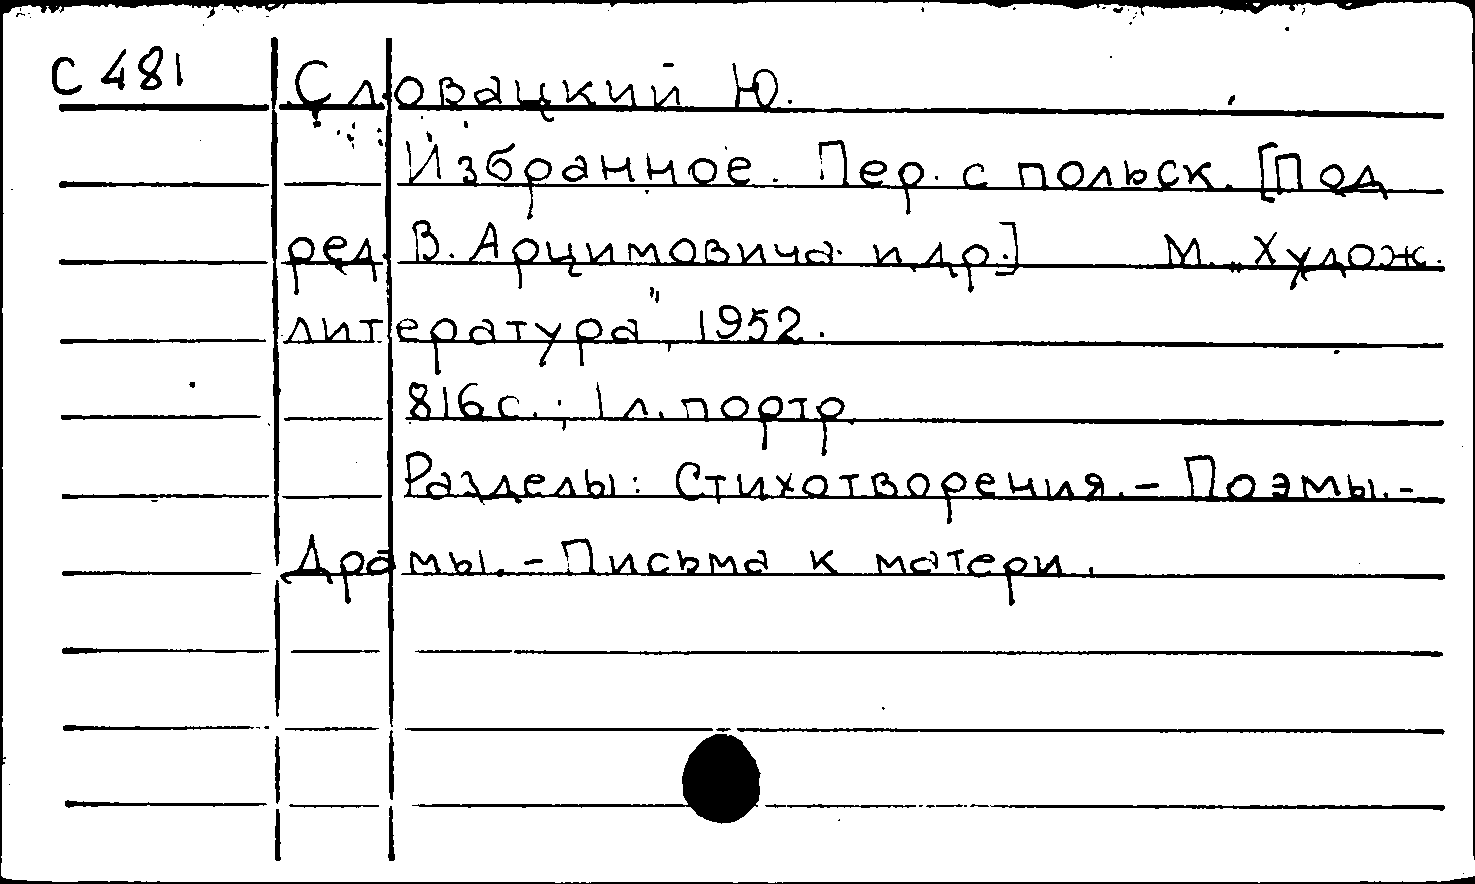 С 481 Словацкий Ю.
Избранное. Пер. с польск. [Под
ред. В. Арцимовича и др.] М. „Худож.
литература", 1952.
816 с.; 1 л. портр
Разделы: Стихотворения. - Поэмы. -
Драмы. - Письма к матери.